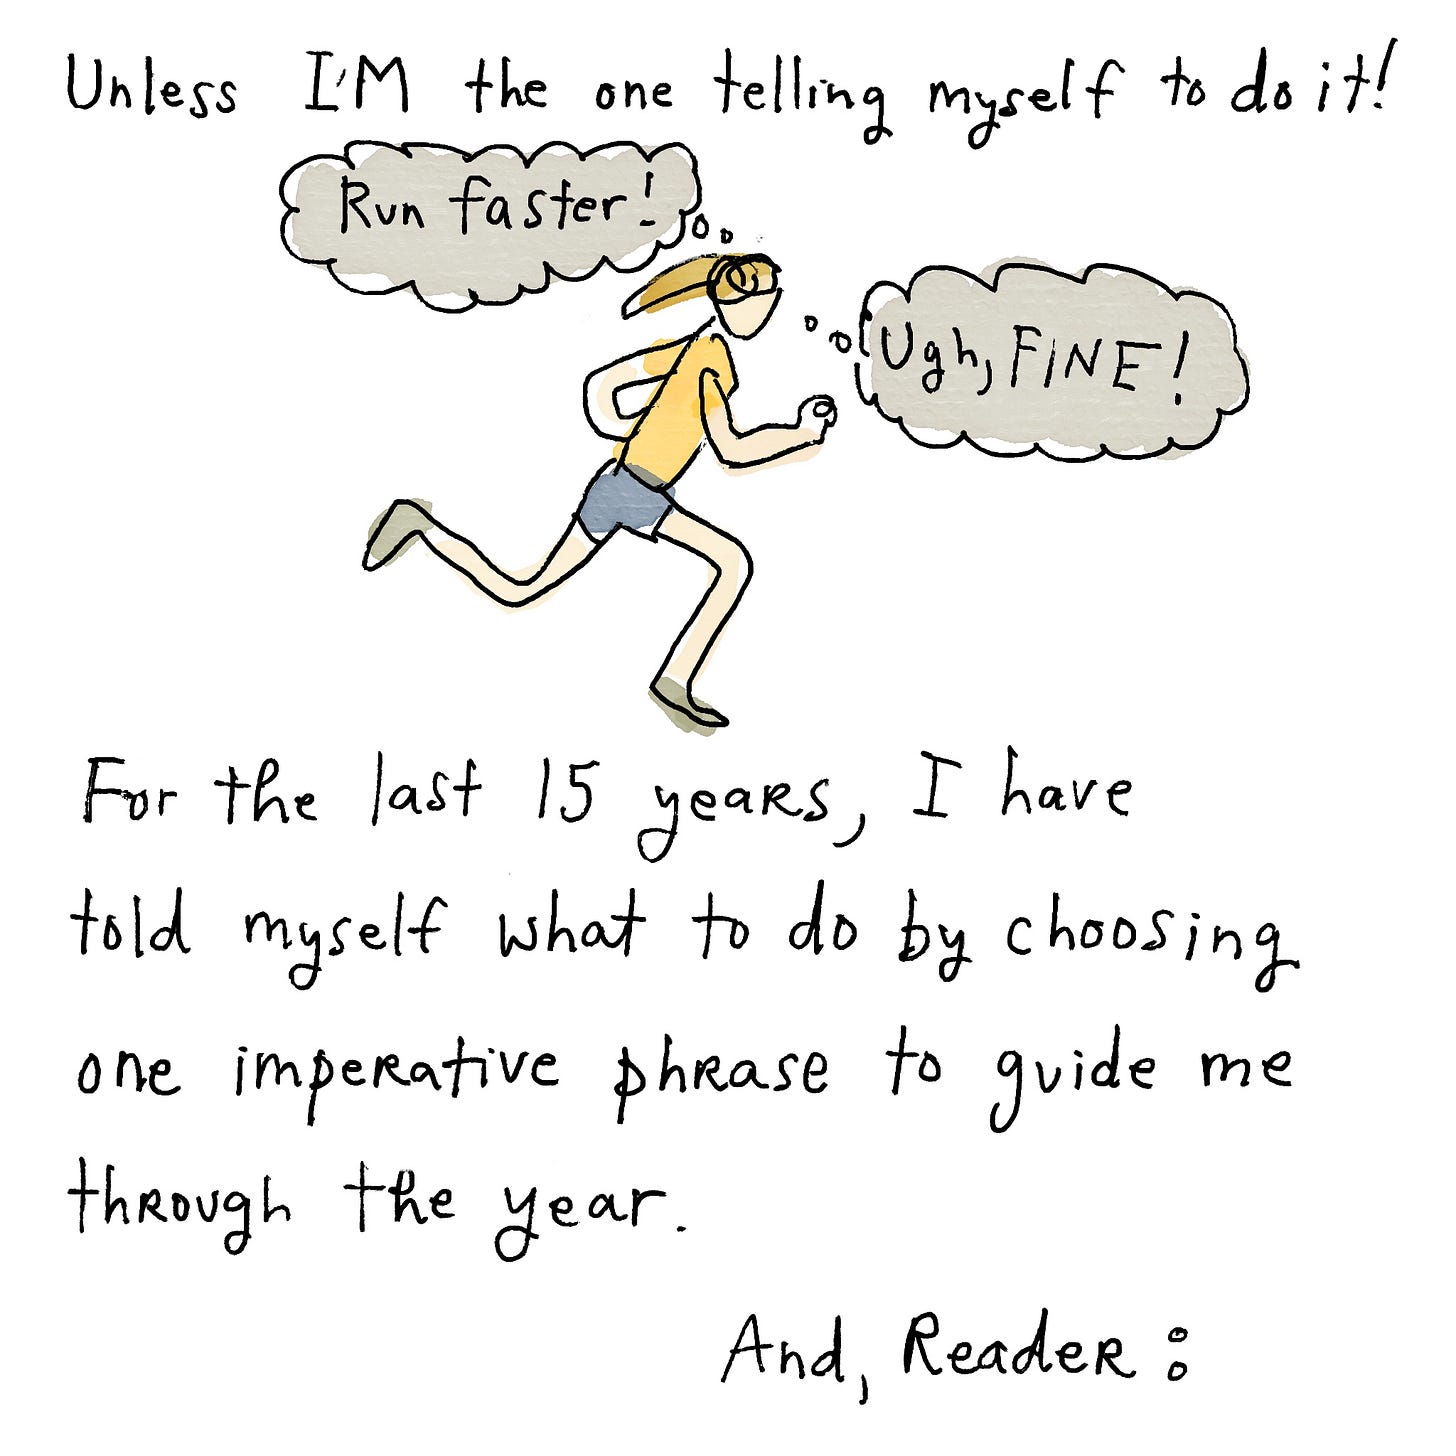 Unless I'M the one telling myself to do it!
Run faster!
Ugh, FINE!
For the last 15 years, I have
told myself what to do by choosing
one imperative phrase to guide me
through the year.
And, Reader: